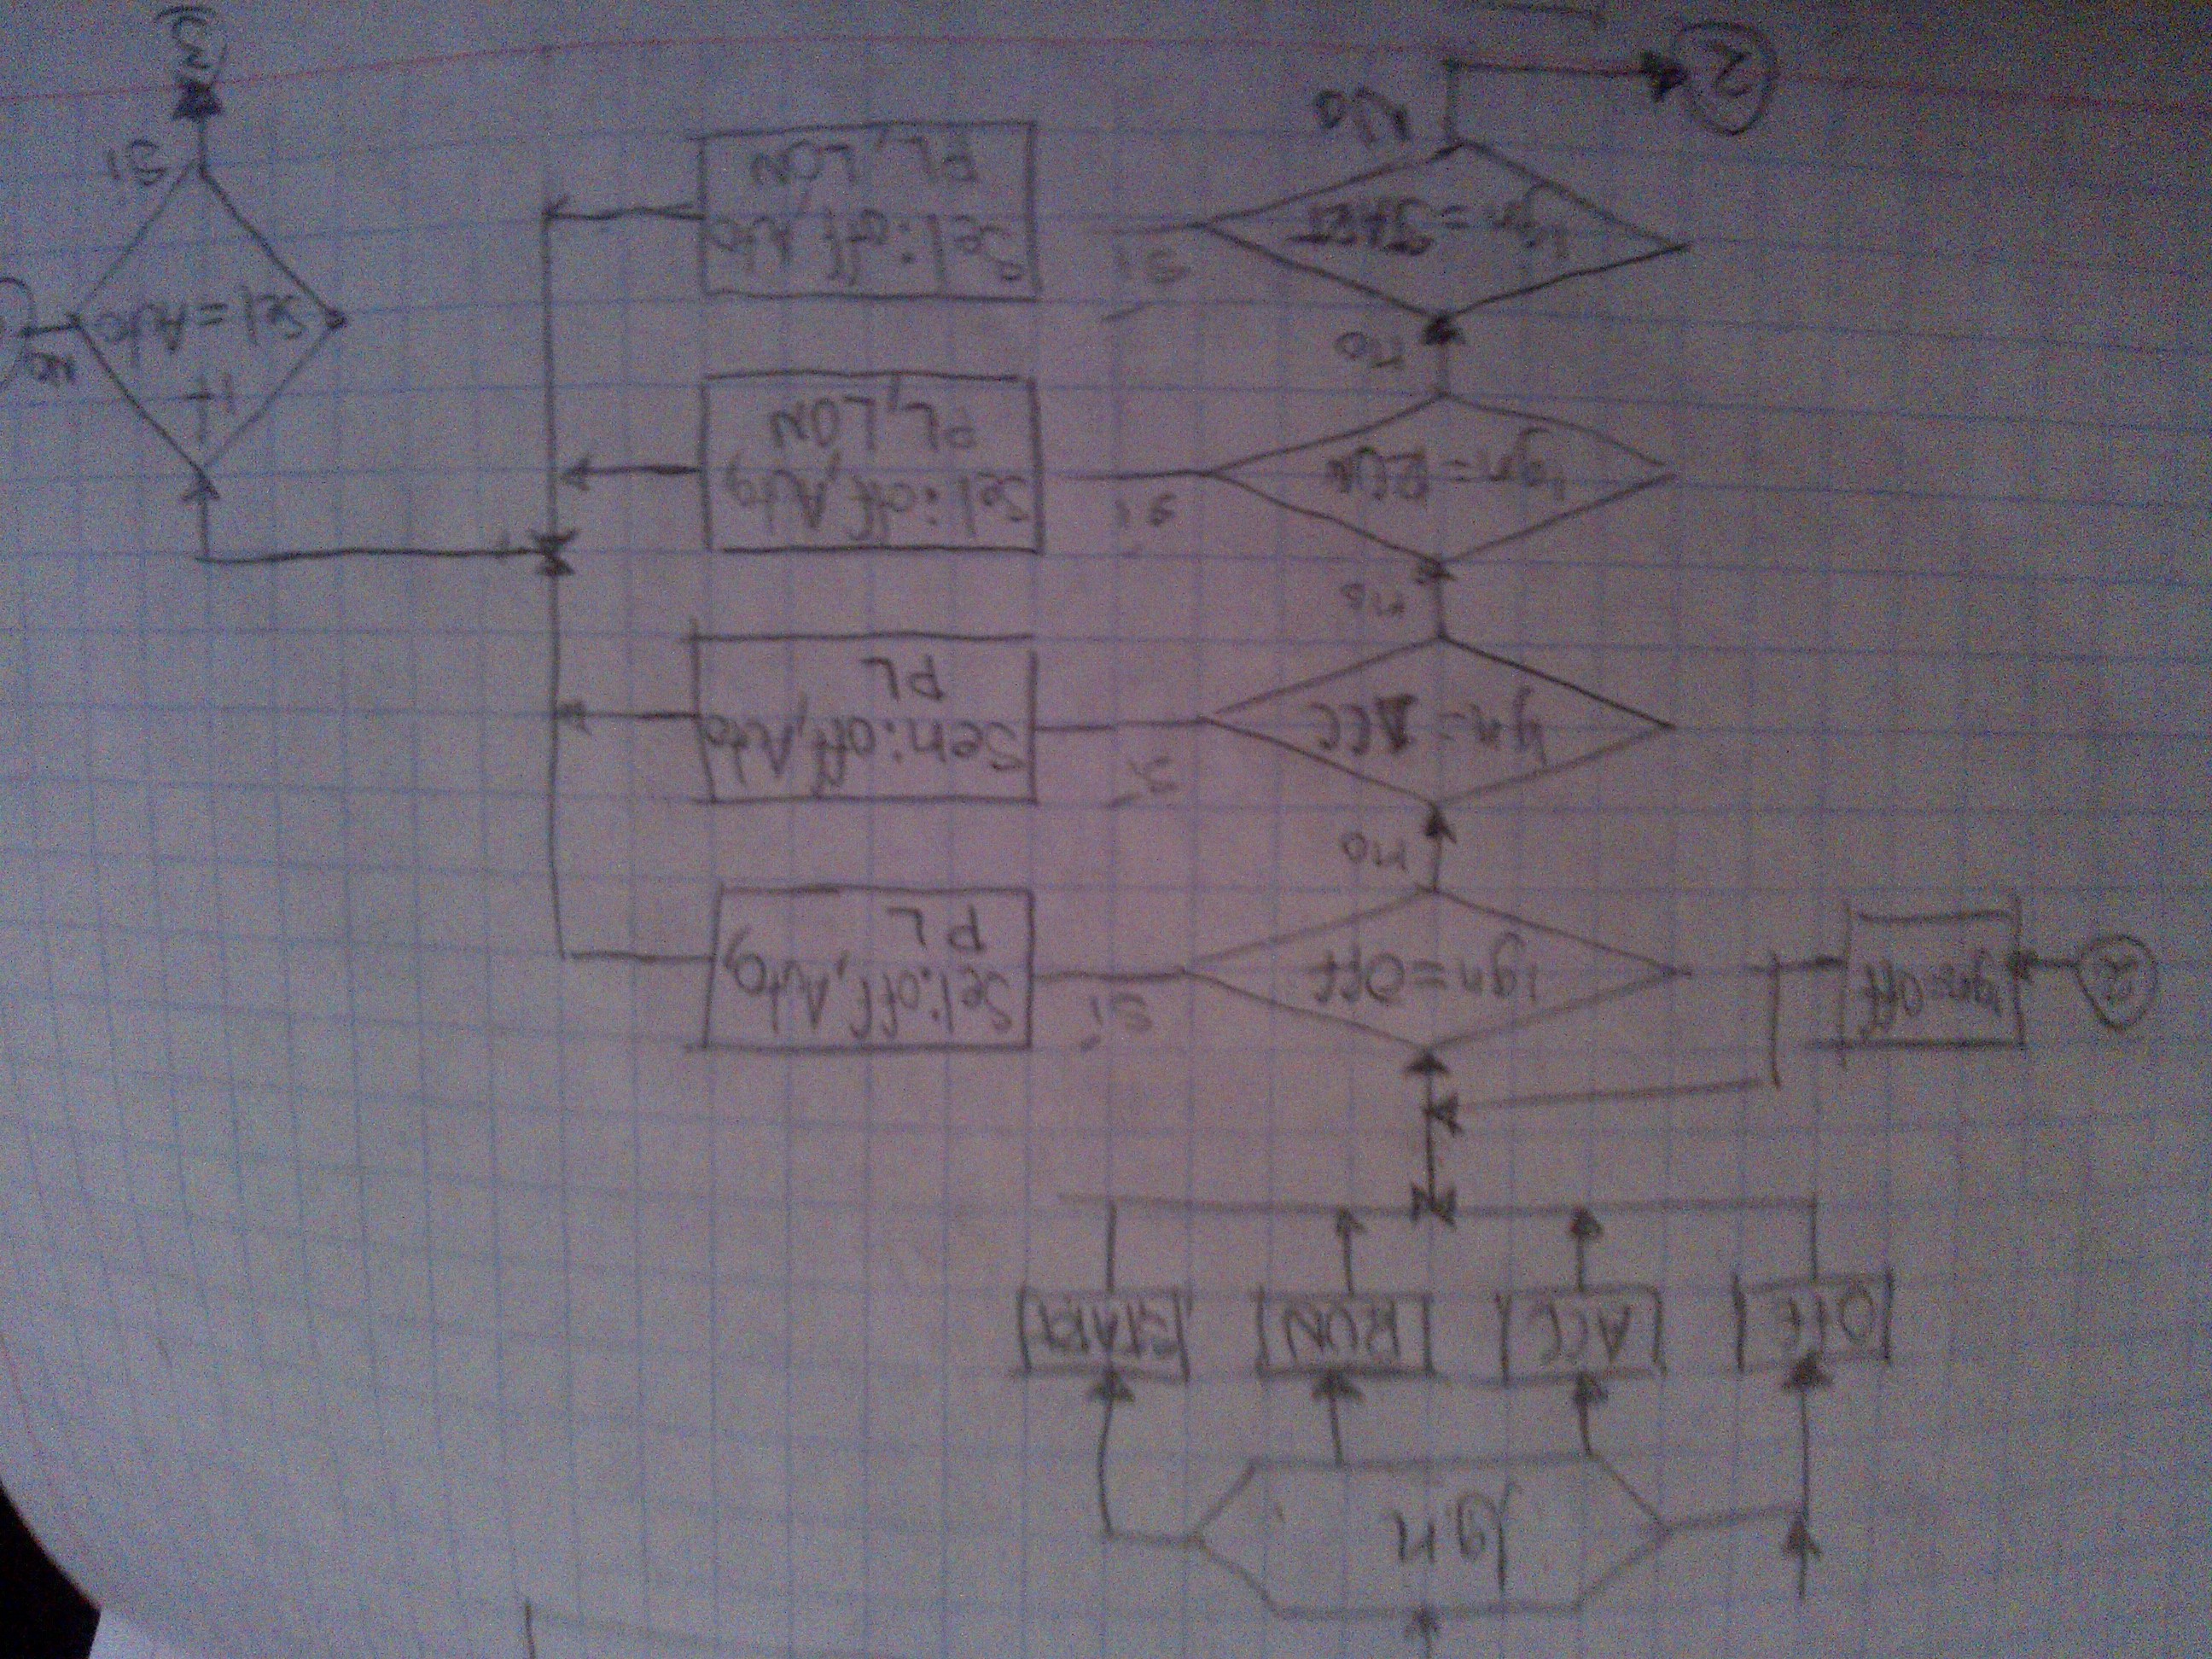 Ign
OFF
ACC
RUN
START
2
Ign=Off
Ign=OFF
Si
Sel:off,Auto,
PL
no
Ign=ACC
Si
Sen:off,Auto
PL
no
Ign=RUN
Si
Sel:off,Auto,
PL,LON
no
Ign=START
Si
Sel:off,Auto
PL,LON
No
2
Sel=Auto
no
Si
3